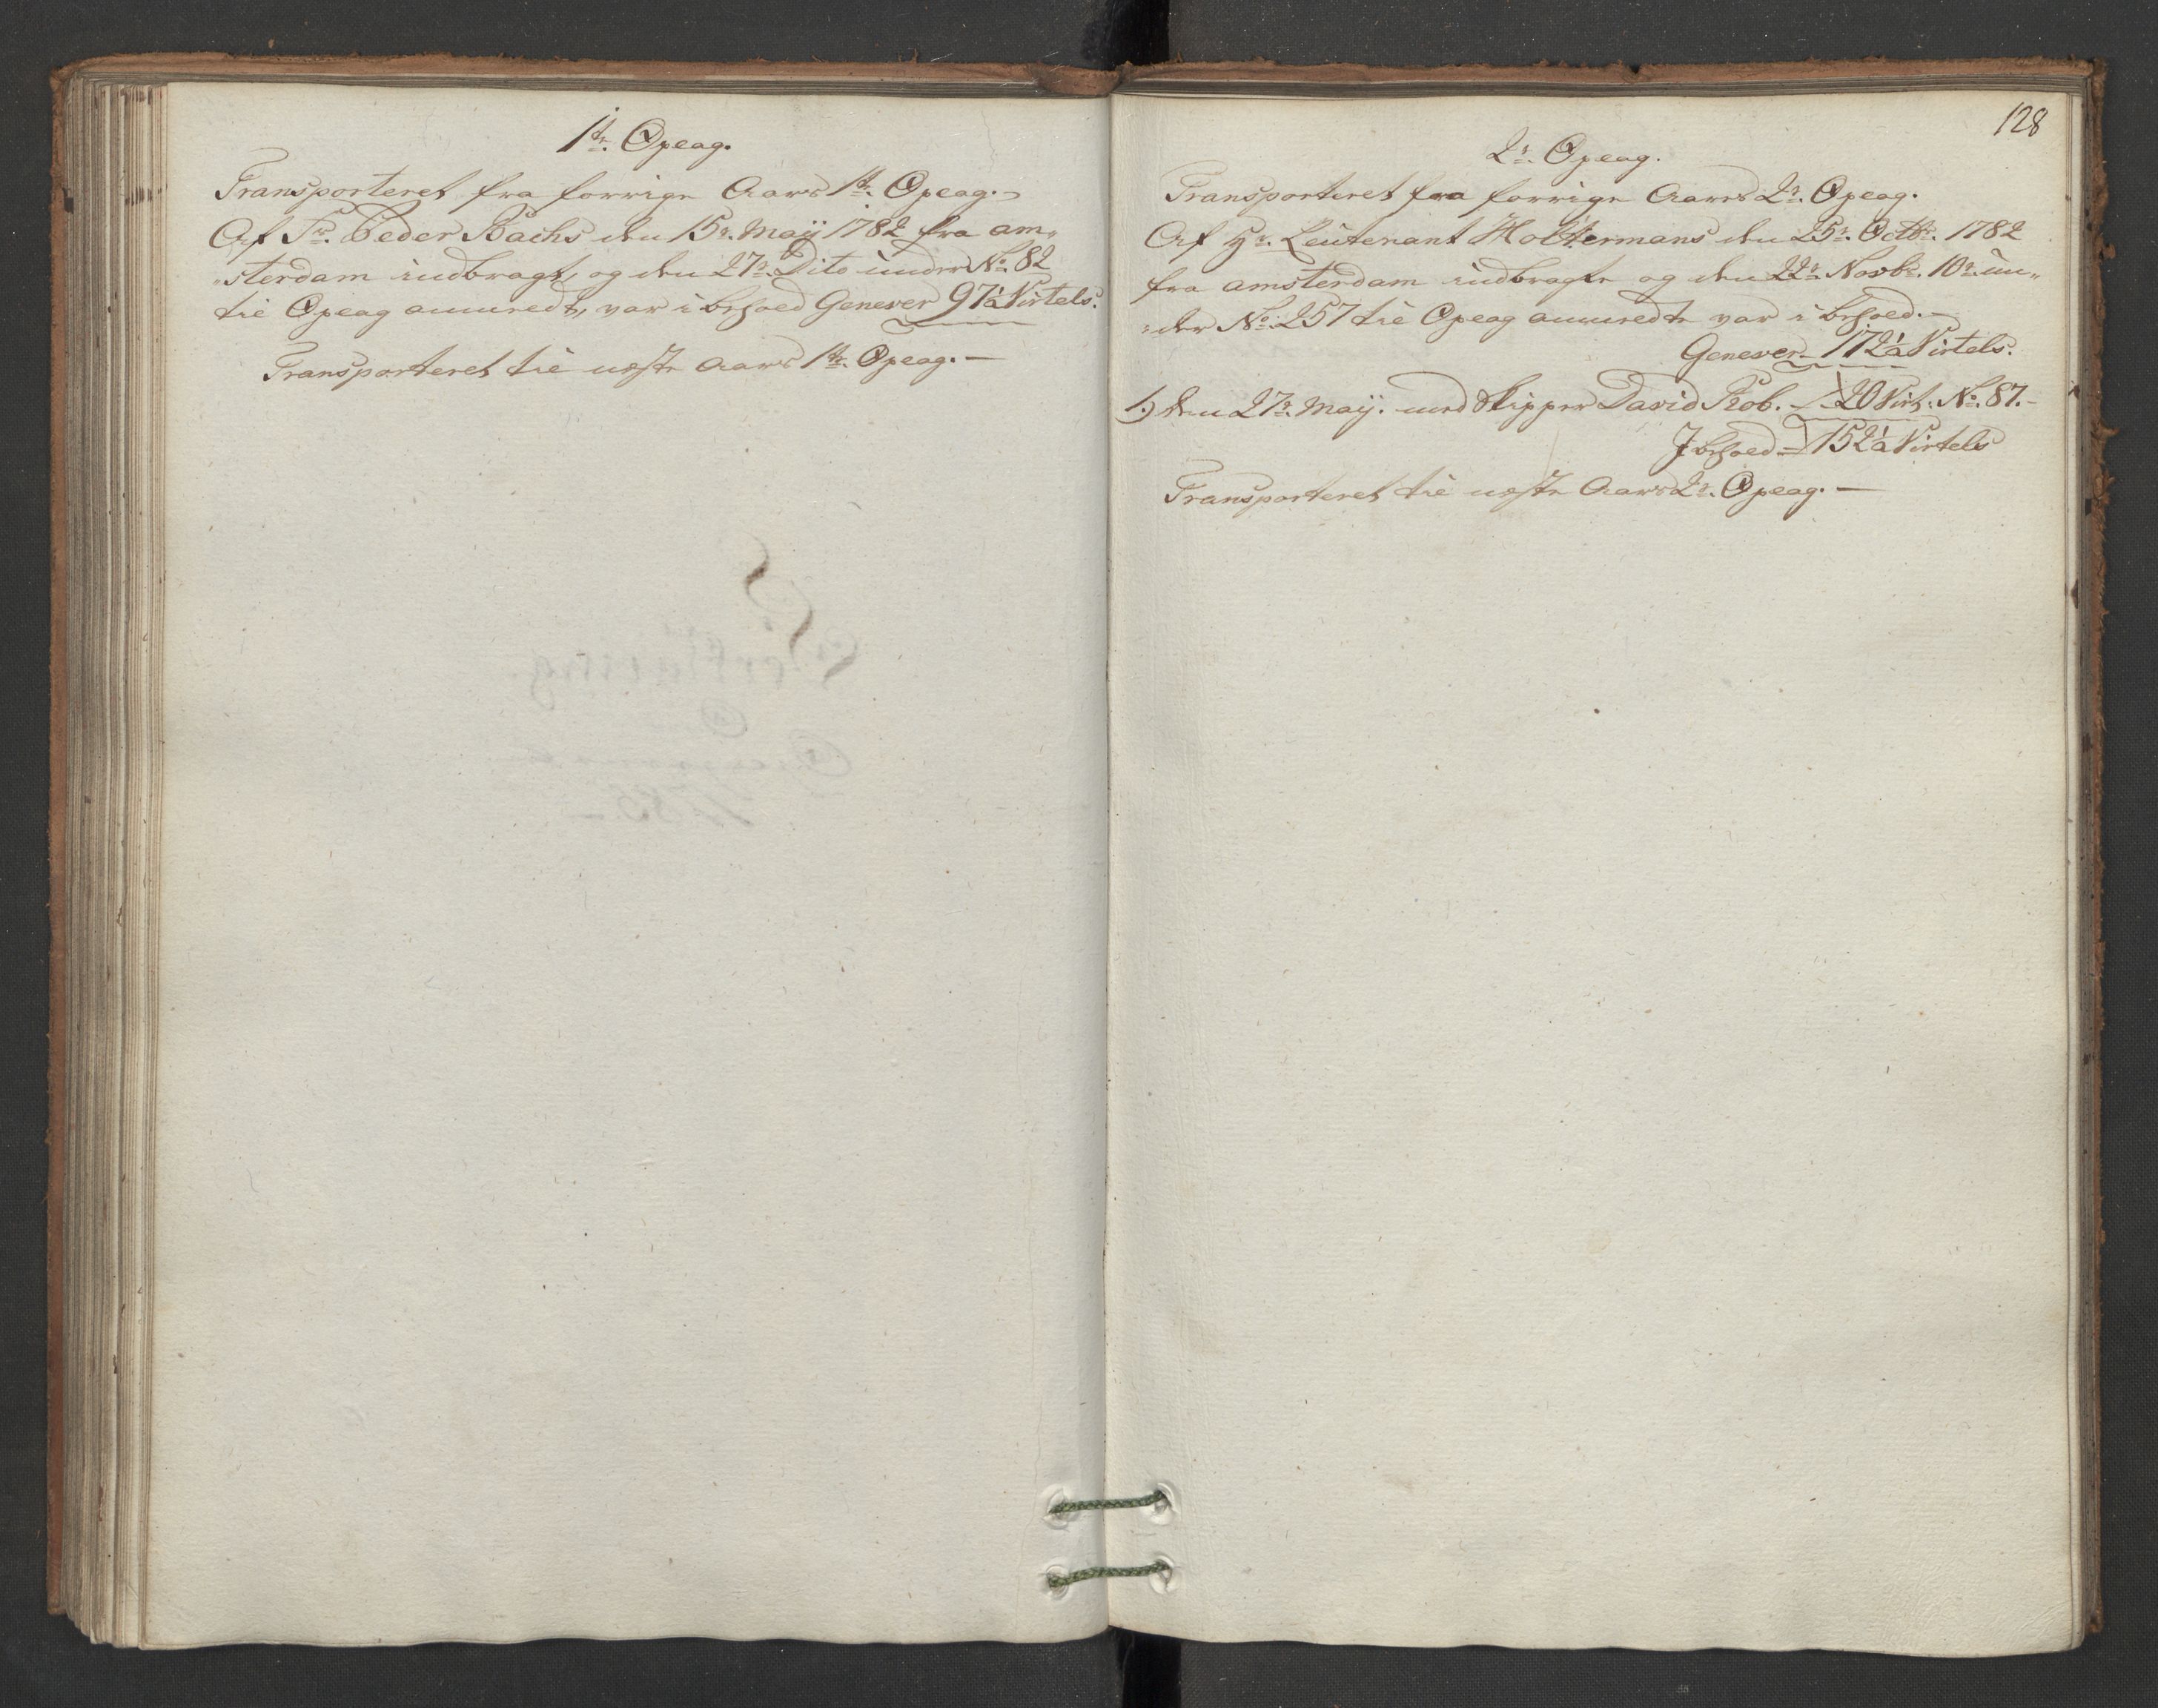 1te. Oplag.
Transporteret fra forrige Aars 1te. Oplag. -
Af Sr. Peder Bachs den 15de. Maÿ 1782 fra am„
„sterdam indbragt, og den 27de. Dito under No. 82
til Oplag anmeldt, var i behold Genever 97½ Virtels.
Transporteret til næste Aars 1te. Oplag. -
128
2de. Oplag.
Transporteret fra forrige Aars 2de. Oplag.
Af Hr. Leutenant Holtermans den 25de. Octbr. 1782
fra amsterdam indbragte og den 22de. Novbr. un„
„der No. 257 til Oplag anmeldte var i behold. -
Genever - 172½ Virtels.
1.) den 27de. Maÿ. med Skipper David Rob. - 20 Virt: No. 87. -
I behold = 152½ Virtels
Transporteret til næste Aars 2de. Oplag. -